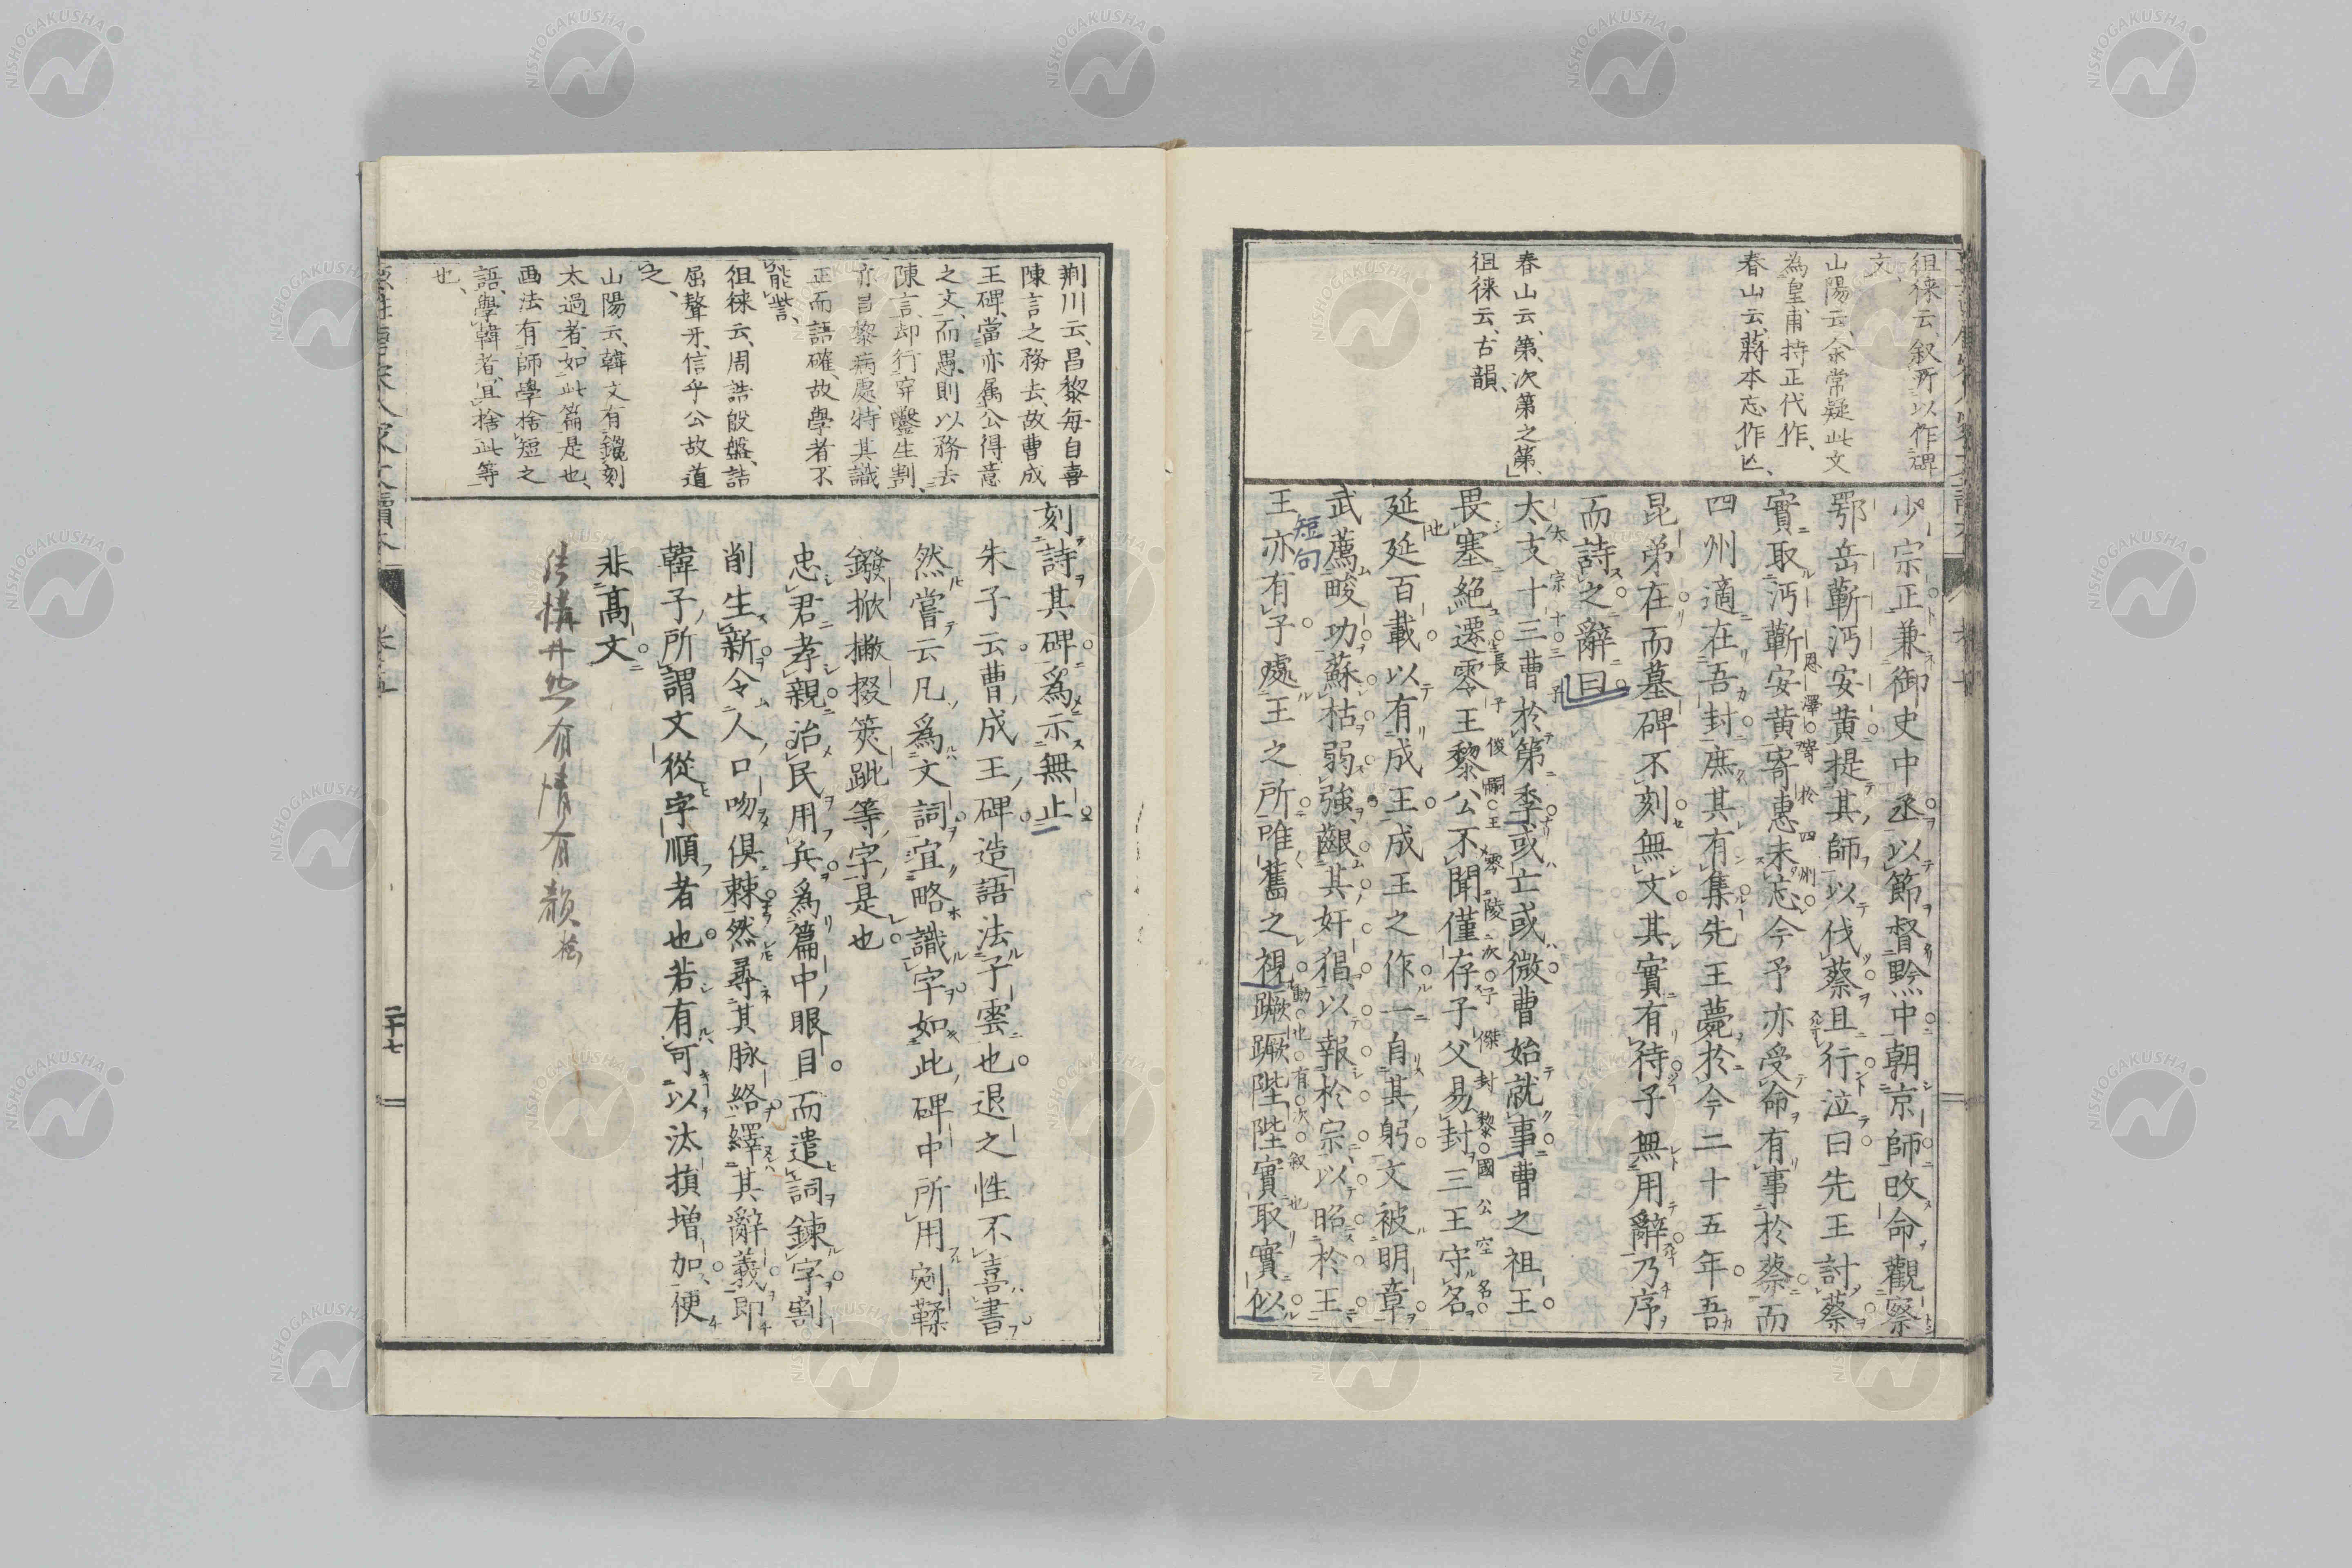 徂徠云、叙所以作碑
文、
山陽云、余常疑此文
為皇甫持正代作、
春山云、蔣本忘作亡、
春山云、第、次第之第、
徂徠云、古韻、
少宗正兼御史中丞以節督黔中朝京師改命觀察
鄂岳蘄沔安黄提其師以伐蔡且行泣曰先王討蔡
實取沔蘄安黄寄惠未忘今予亦受命有事於蔡而
四州適在吾封庶其有集先王薨於今二十五年吾
昆弟在而墓碑不刻無文其實有待子無用辭乃序
而詩之辭曰
太支十三曹於第季或亡或微曹始就事曹之祖王
畏塞絕遷零王黎公不聞僅存子父易封三王守名
延延百載以有成王成王之作一自其躬文被明章
武薦畯功蘇枯弱強齦其奸猖以報於宗以昭於王
短句
王亦有子處王之所唯舊之視蹶蹶陛陛實取實似
荆川云、昌黎每自喜
陳言之務去、故曹成
王碑、當亦属公得意
之文、而愚則以務去
陳言、却行穿鑿生割、
亦昌黎病處、特其識
正而語確、故學者不
能訾、
徂徠云、周誥殷盤、詰
屈聱牙、信乎公故道
之、
山陽云、韓文有鐫刻
太過者、如此篇是也、
画法有師學捨短之
語、學韓者、宜捨此等
也、
刻詩其碑爲示無止
朱子云曹成王碑造語法子雲也退之性不喜書
然嘗云凡爲文詞宜略識字如此碑中所用剜鞣
鏺掀撇掇筴跐等字是也
忠君孝親治民用兵爲篇中眼目而遣詞鍊字割
削生新令人口吻倶棘然尋其脉絡繹其辭義即
韓子所謂文從字順者也若有可以汰損増加便
非高文
二十七
NISHOGAKUSHA